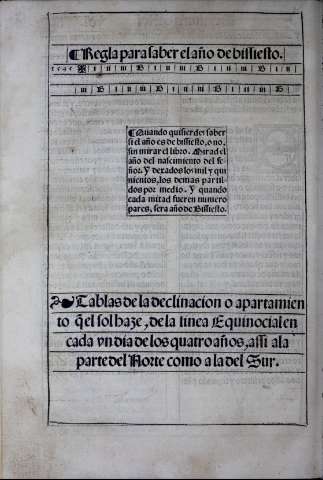 ¶Regla para saber el año de bissiesto.
i ii iii B i ii iii B i ii iii B i ii
iii B i ii iii B i ii iii B i ii iii B
¶Quando quisierdes saber
si el año es de bissiesto, o no,
sin mirar el libro. Mirad el
año del nascimento del se-
ñor. Y dexados los mil y qui
nientos, los demas parti-
dos por medio. Y quando
cada mitad fueren numero
pares, sera año de Bissiesto.
Tablas de la declinacion o apartamien
to q̃ el sol haze, de la linea Equinocial en
cada vn dia de los quatro años, assi a la
parte del Norte como a la del Sur.